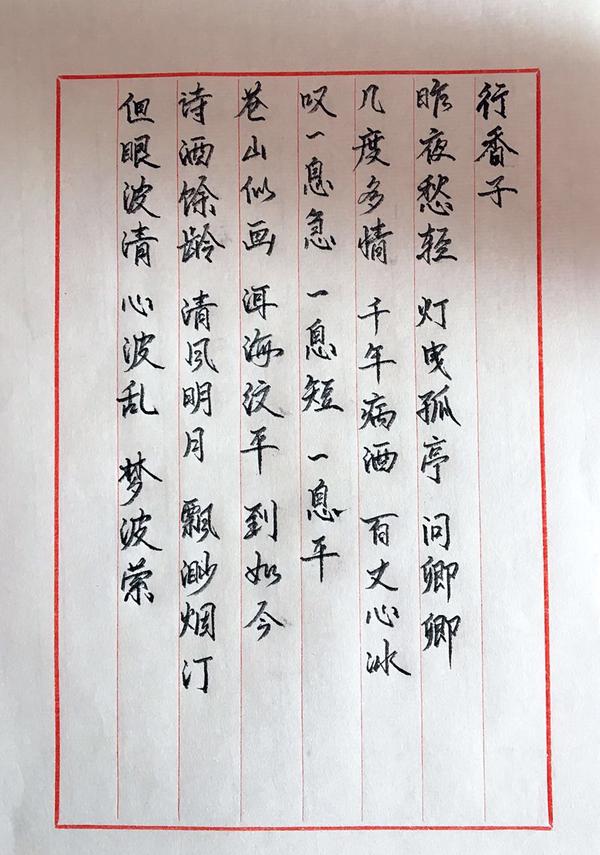 行香子
昨夜愁轻 灯曳孤亭 问卿卿
几度多情 千年病酒 百丈心冰
叹一息急 一息短 一息平
苍山似画 洱海纹平 到如今
诗酒馀龄 清风明月 飘渺烟汀
但眼波清 心波乱 梦波萦